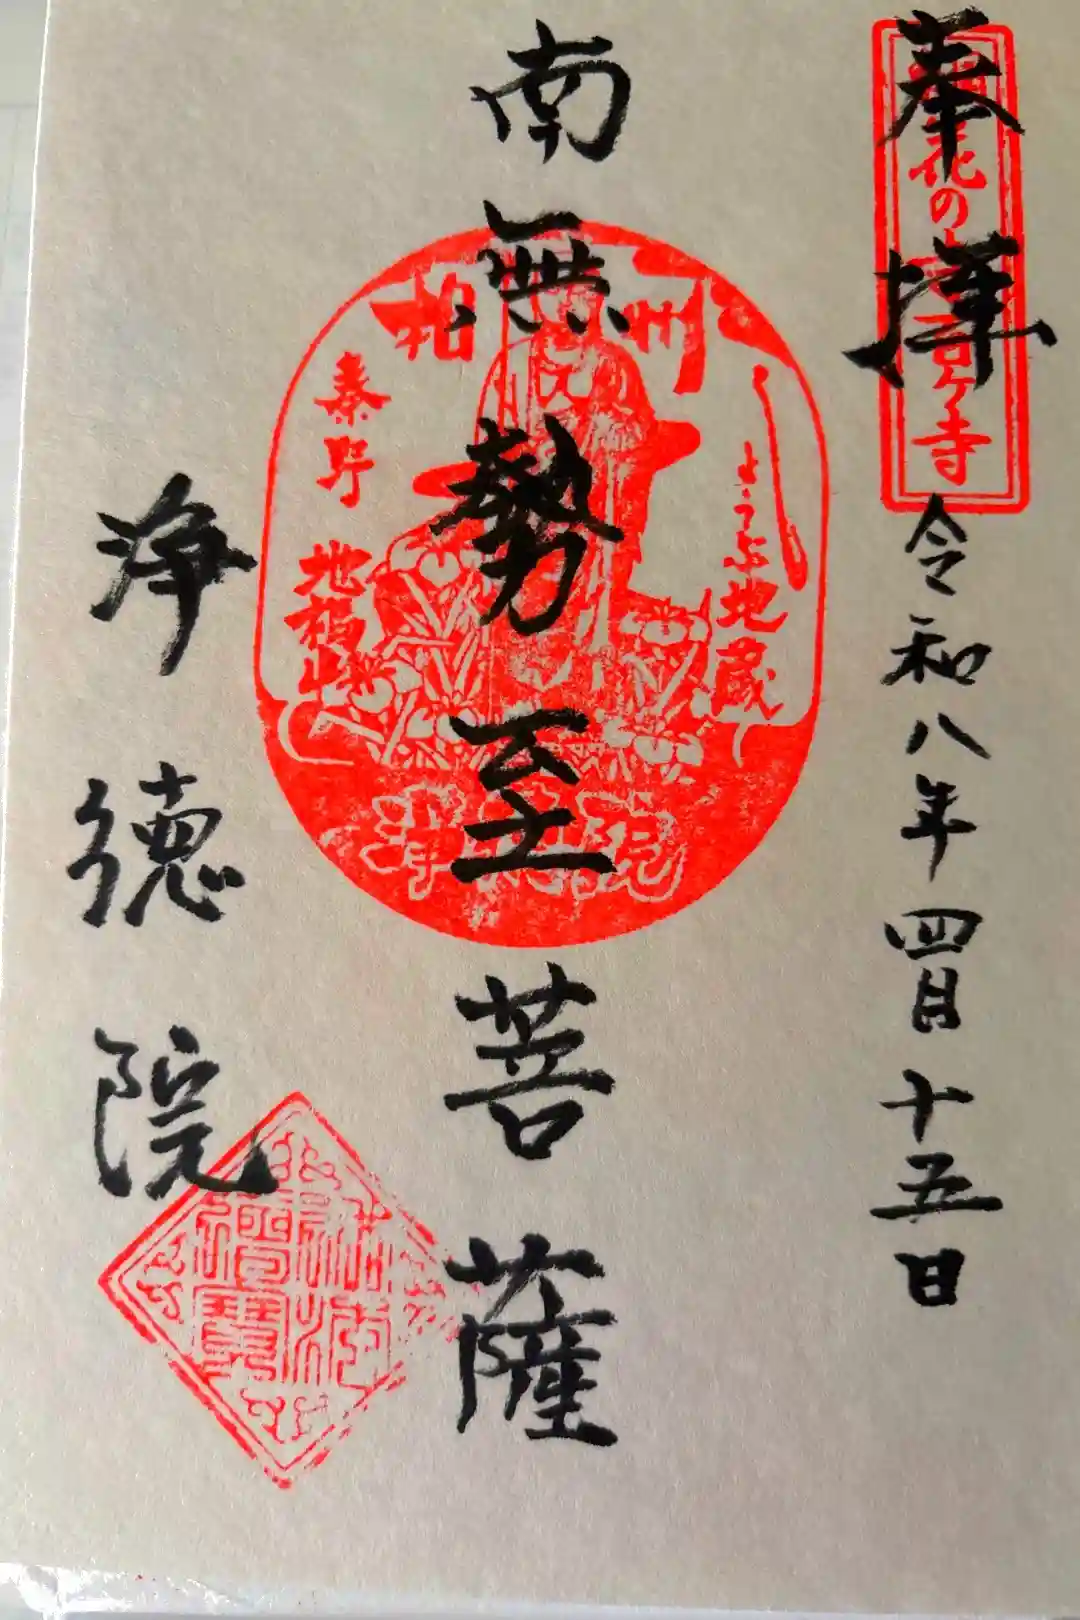 奉拝
花の寺百ヶ寺
令和八年四月十五日
南無勢至菩薩
相州
秦野
地福山
しょうぶ地蔵
浄徳院
浄徳院